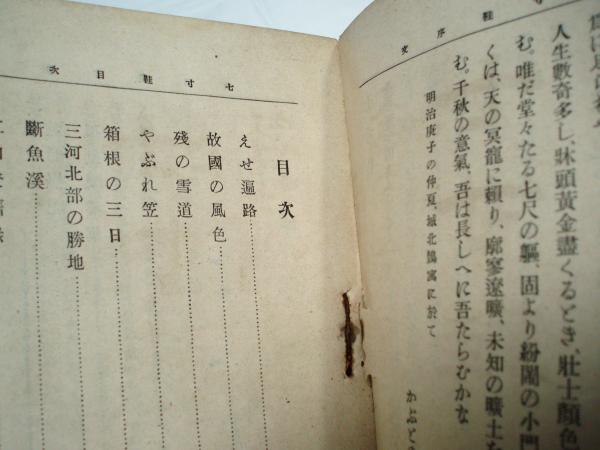 鞋序文
人生數奇多し、牀頭黃金盡くるとき、壯士顏色
む。唯だ堂々たる七尺の軀、固より紛鬧の小門
くは、天の冥寵に賴り、廓寥遼曠、未知の曠土を
む。千秋の意氣、吾は長しへに吾たらむかな
明治庚子の仲夏、城北臨寓に於て
かぶと
七寸鞋目次
目次
えせ遍路
故國の風色
殘の雪道
やぶれ笠
箱根の三日
三河北部の勝地
斷魚溪